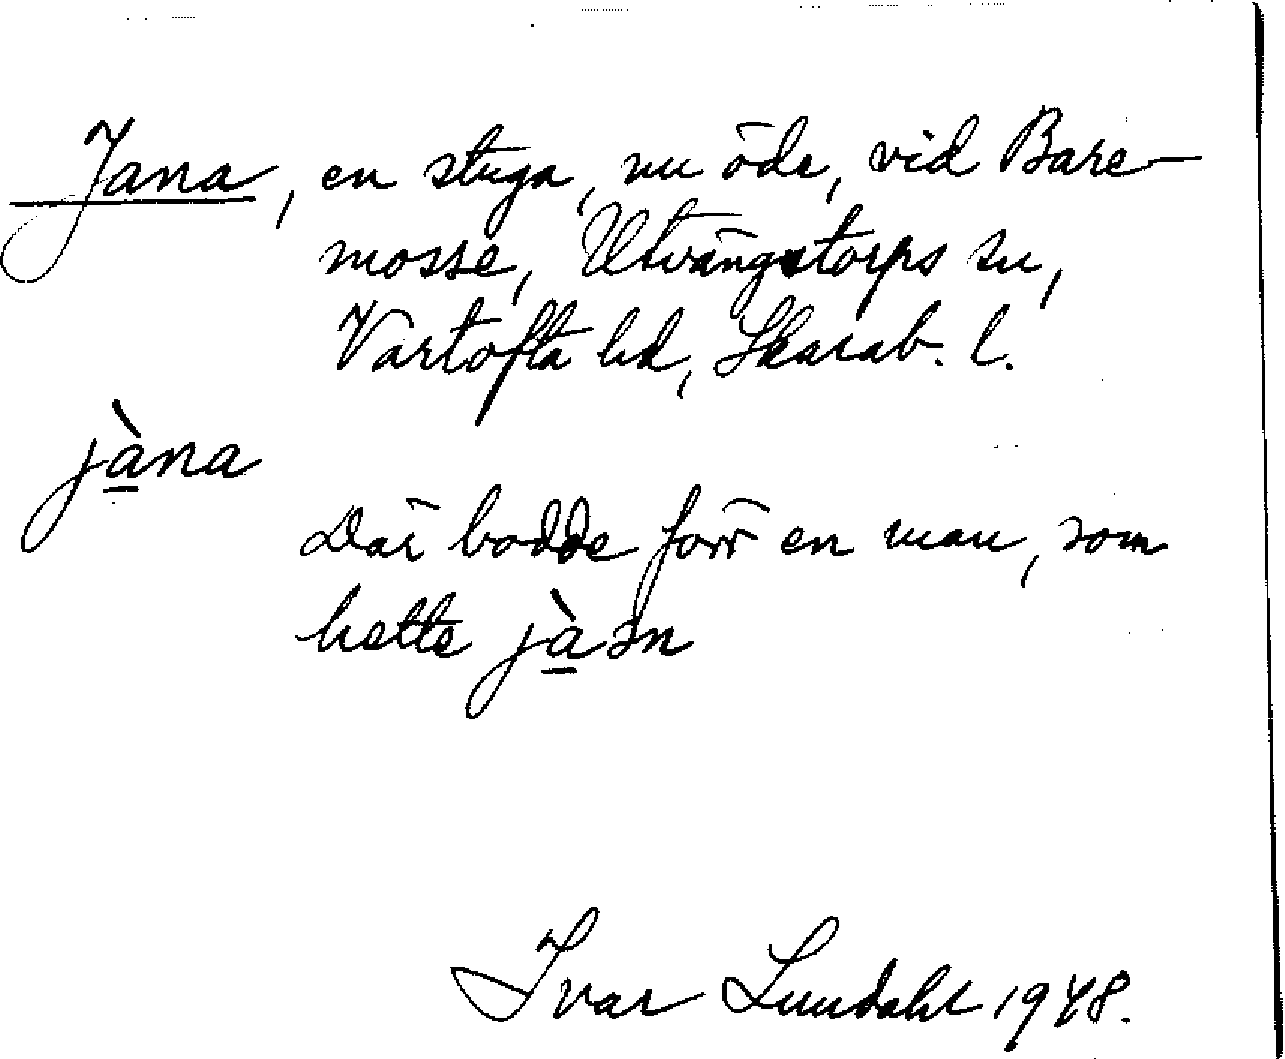 Jana, en stuga, nu öde, vid Bare-
mosse, Utvängstorps sn,
Vartofta hd, Skarab. l.
jàna
Där bodde förr en man, som
hette jàn
Ivar Lundahl 1948.